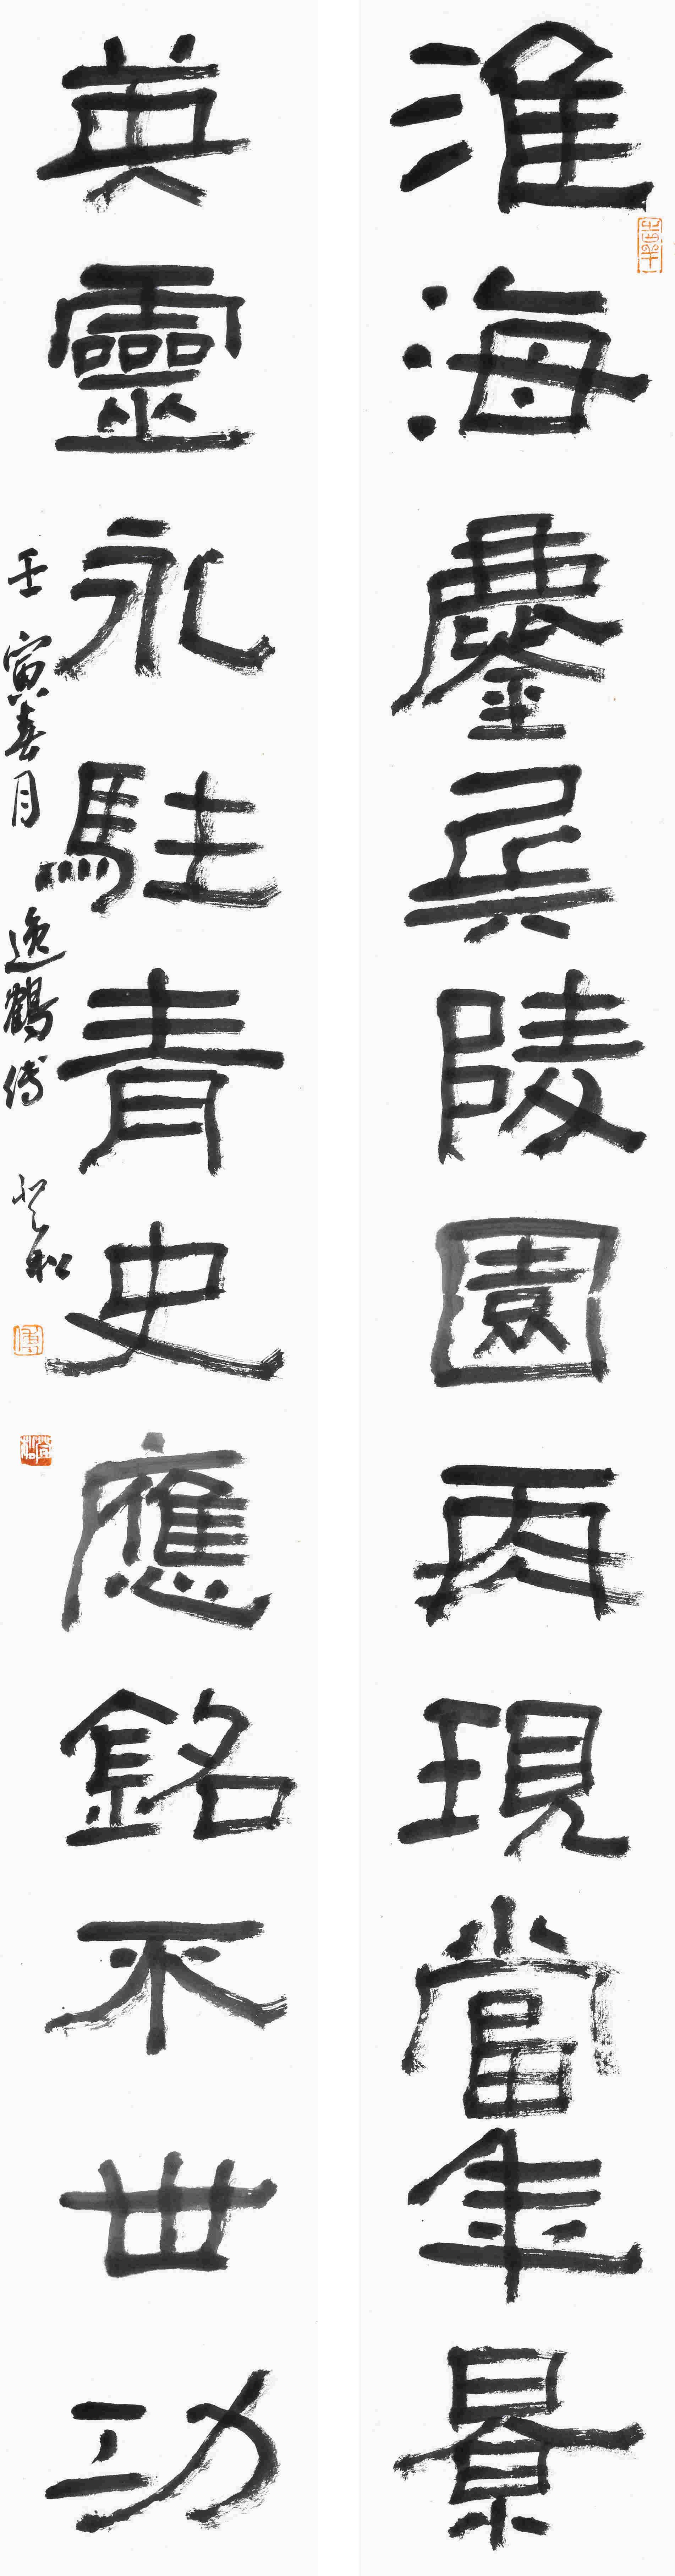 淮海鏖兵陵園再現當年景
英靈永駐青史應銘不世功
壬寅春月 逸鶴 傅 登松